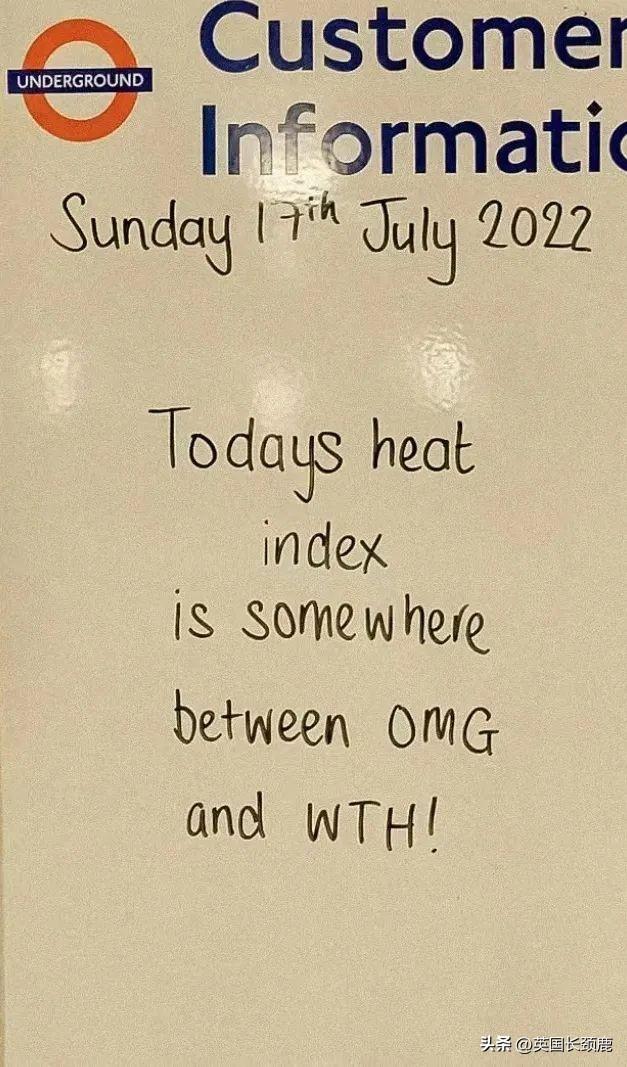 UNDERGROUND
Customer
Informatio
Sunday 17th July 2022
Todays heat
index
is somewhere
between OMG
and WTH!
头条 @英国长颈鹿